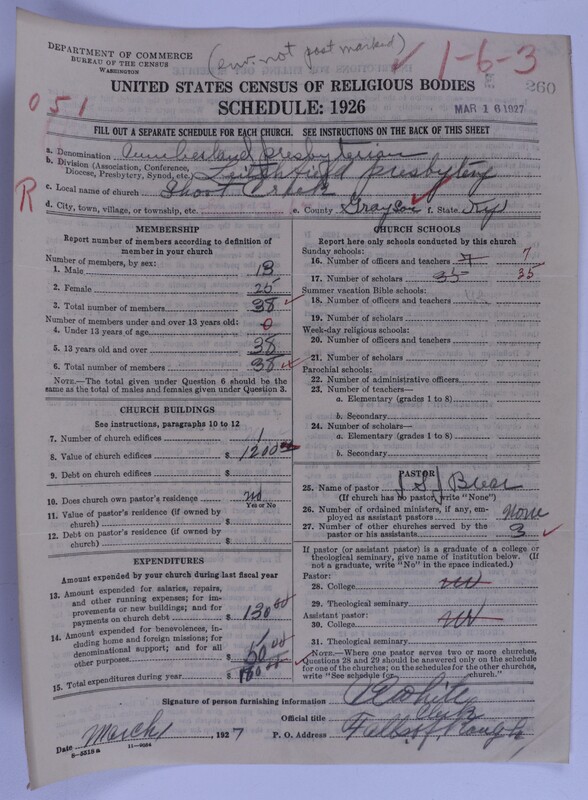 (env. not post marked)
✓ 1-6-3
DEPARTMENT OF COMMERCE
BUREAU OF THE CENSUS
WASHINGTON
260
UNITED STATES CENSUS OF RELIGIOUS BODIES
SCHEDULE: 1926
MAR 16 1927
051
FILL OUT A SEPARATE SCHEDULE FOR EACH CHURCH. SEE INSTRUCTIONS ON THE BACK OF THIS SHEET
a. Denomination Cumberland Presbyterian
b. Division (Association, Conference, Diocese, Presbytery, Synod, etc. Leitchfield Presbytery
R
c. Local name of church Short Creek
d. City, town, village, or township, etc. e. County Grayson f. State Ky
MEMBERSHIP
Report number of members according to definition of member in your church
Number of members, by sex:
1. Male 13
2. Female 25
3. Total number of members 38 ✓
Number of members under and over 13 years old:
4. Under 13 years of age 0
5. 13 years old and over 38
6. Total number of members 38 ✓
NOTE.—The total given under Question 6 should be the same as the total of males and females given under Question 3.
CHURCH BUILDINGS
See instructions, paragraphs 10 to 12
7. Number of church edifices 1
8. Value of church edifices $ 1200 00
9. Debt on church edifices $
10. Does church own pastor's residence no
Yes or No
11. Value of pastor's residence (if owned by church) $
12. Debt on pastor's residence (if owned by church) $
EXPENDITURES
Amount expended by your church during last fiscal year
13. Amount expended for salaries, repairs, and other running expenses; for improvements or new buildings; and for payments on church debt $ 130 00
14. Amount expended for benevolences, including home and foreign missions; for denominational support; and for all other purposes $ 50 00
15. Total expenditures during year $ 180 00 ✓
CHURCH SCHOOLS
Report here only schools conducted by this church
Sunday schools:
16. Number of officers and teachers 7 7
17. Number of scholars 35 35
Summer vacation Bible schools:
18. Number of officers and teachers
19. Number of scholars
Week-day religious schools:
20. Number of officers and teachers
21. Number of scholars
Parochial schools:
22. Number of administrative officers
23. Number of teachers—
a. Elementary (grades 1 to 8)
b. Secondary
24. Number of scholars—
a. Elementary (grades 1 to 8)
b. Secondary
PASTOR
25. Name of pastor
(If church has no pastor, write "None")
26. Number of ordained ministers, if any, employed as assistant pastors None
27. Number of other churches served by the pastor or his assistants 3 ✓
If pastor (or assistant pastor) is a graduate of a college or theological seminary, give name of institution below. (If not a graduate, write "No" in the space indicated.)
Pastor:
28. College no
29. Theological seminary
Assistant pastor:
30. College no
31. Theological seminary
NOTE.—Where one pastor serves two or more churches, Questions 28 and 29 should be answered only on the schedule for one of the churches; on the schedules for the other churches, write "See schedule for church."
Signature of person furnishing information White
Official title Clerk
Date March 1, 1927 P. O. Address Falls of Rough
8-5518 a 11-9264